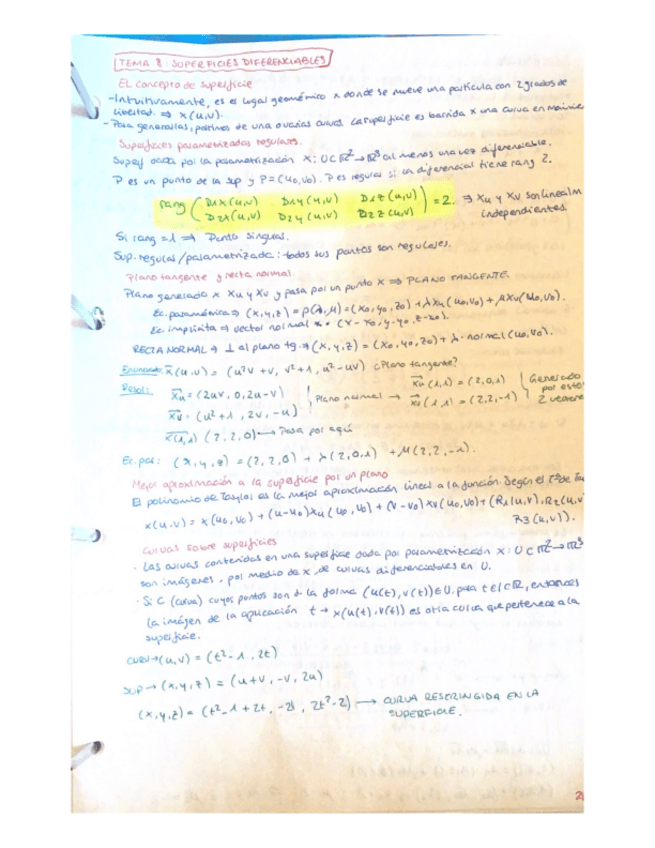 TEMA 8: SUPERFICIES DIFERENCIABLES
El concepto de superficie
- Intuitivamente, es el lugar geométrico x donde se mueve una partícula con 2 grados de
libertad. ⇒ x(u,v).
- Para generarlas, partimos de una o varias curvas. La superficie es barrida x una curva en
Superficies parametrizadas regulares.
Superf dada por la parametrización X: U⊂ℝ²→ℝ³ al menos una vez diferenciable.
P es un punto de la sup y P=(u₀,v₀). P es regular si la diferencial tiene rang 2.
rang ( D1x(u,v) D1y(u,v) D1z(u,v) ) = 2. ⇒ Xu y Xv son linealm
D2x(u,v) D2y(u,v) D2z(u,v) independientes.
Si rang = 1 ⇒ Punto singular.
Sup. regular/parametrizada: todos sus puntos son regulares.
Plano tangente y recta normal.
Plano generado x Xu y Xv y pasa por un punto X ⇒ PLANO TANGENTE.
Ec. paramétrica ⇒ (x,y,z) = p(λ,μ) = (x₀,y₀,z₀) + λXu(u₀,v₀) + μXv(u₀,v₀).
Ec. implícita ⇒ vector normal · (x-x₀, y-y₀, z-z₀).
RECTA NORMAL ⇒ ⊥ al plano tg. ⇒ (x,y,z) = (x₀,y₀,z₀) + λ·normal(u₀,v₀).
Enunciado: x(u,v) = (u²v + v, v²+1, u²-uv) ¿Plano tangente?
Resol: Xu = (2uv, 0, 2u-v) Plano normal → Xu(1,1) = (2,0,1) Generado
Xv = (u²+1, 2v, -u) Xv(1,1) = (2,2,-1) por estos
X(1,1) (2,2,0) → Pasa por aquí 2 vectores
Ec. par: (x,y,z) = (2,2,0) + λ(2,0,1) + μ(2,2,-1).
Mejor aproximación a la superficie por un plano
El polinomio de Taylor es la mejor aproximación lineal a la función. Según el Tª de
x(u,v) = x(u₀,v₀) + (u-u₀)Xu(u₀,v₀) + (v-v₀)Xv(u₀,v₀) + (R1(u,v), R2(u,v
R3(u,v)).
Curvas sobre superficies
· Las curvas contenidas en una superficie dada por parametrización X: U⊂ℝ²→ℝ³
son imágenes, por medio de x, de curvas diferenciables en U.
· Si C (curva) cuyos puntos son d la forma (u(t), v(t)) ∈ U, para t∈I⊂ℝ, entonces
la imágen de la aplicación t → x(u(t), v(t)) es otra curva que pertenece a la
superficie.
CURV → (u,v) = (t²-1, 2t)
SUP → (x,y,z) = (u+v, -v, 2u)
(x,y,z) = (t²-1+2t, -2t, 2t²-2) → CURVA RESTRINGIDA EN LA
SUPERFICIE.